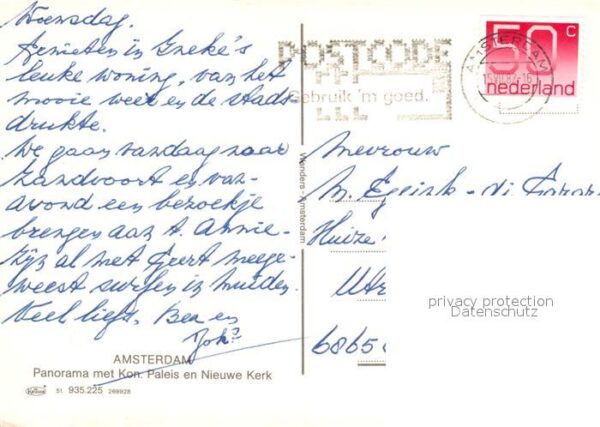 Woensdag.
Genieten in Ineke's
leuke woning, van het
mooie weer en de stads
drukte.
We gaan vandaag naar
Zandvoort en van-
avond een bezoekje
brengen aan t. Annie.
Zijn al met Geert meege-
weest surfen in Muiden.
Veel liefs, Ben en
Joh?
AMSTERDAM
Panorama met Kon. Paleis en Nieuwe Kerk
51 935.225 269928
Wunders - Amsterdam
POSTCODE
Gebruik 'm goed.
AMSTERDAM
50 c
nederland
Mevrouw
M.
Huize
Utr
6865
privacy protection
Datenschutz